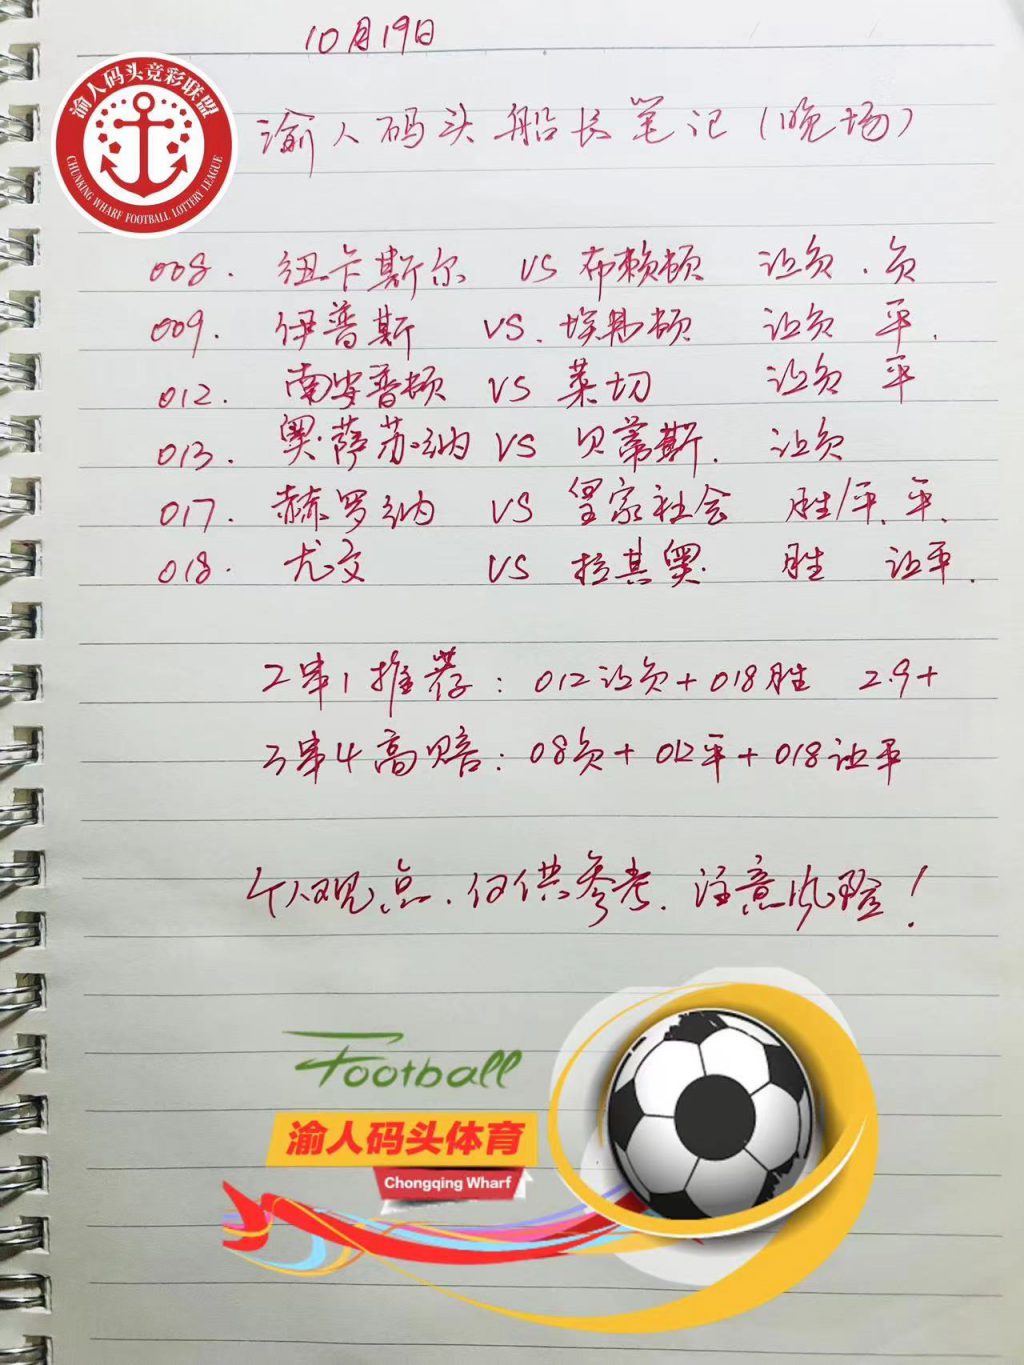 10月19日
渝人码头竞彩联盟
CHUNKING WHARF FOOTBALL LOTTERY LEAGUE
渝人码头船长笔记(晚场)
008. 纽卡斯尔 VS 布赖顿 让负.负
009. 伊普斯 VS. 埃弗顿 让负 平.
012. 南安普顿 VS 莱切 让负 平
013. 奥萨苏纳 VS 贝蒂斯. 让负
017. 赫罗纳 VS 皇家社会 胜/平.平.
018. 尤文 VS 拉其奥. 胜 让平.
2串1推荐: 012让负+018胜 2.9+
3串4高赔: 08负+012平+018让平
个人观点.仅供参考.注意风险!
Football
渝人码头体育
Chongqing Wharf